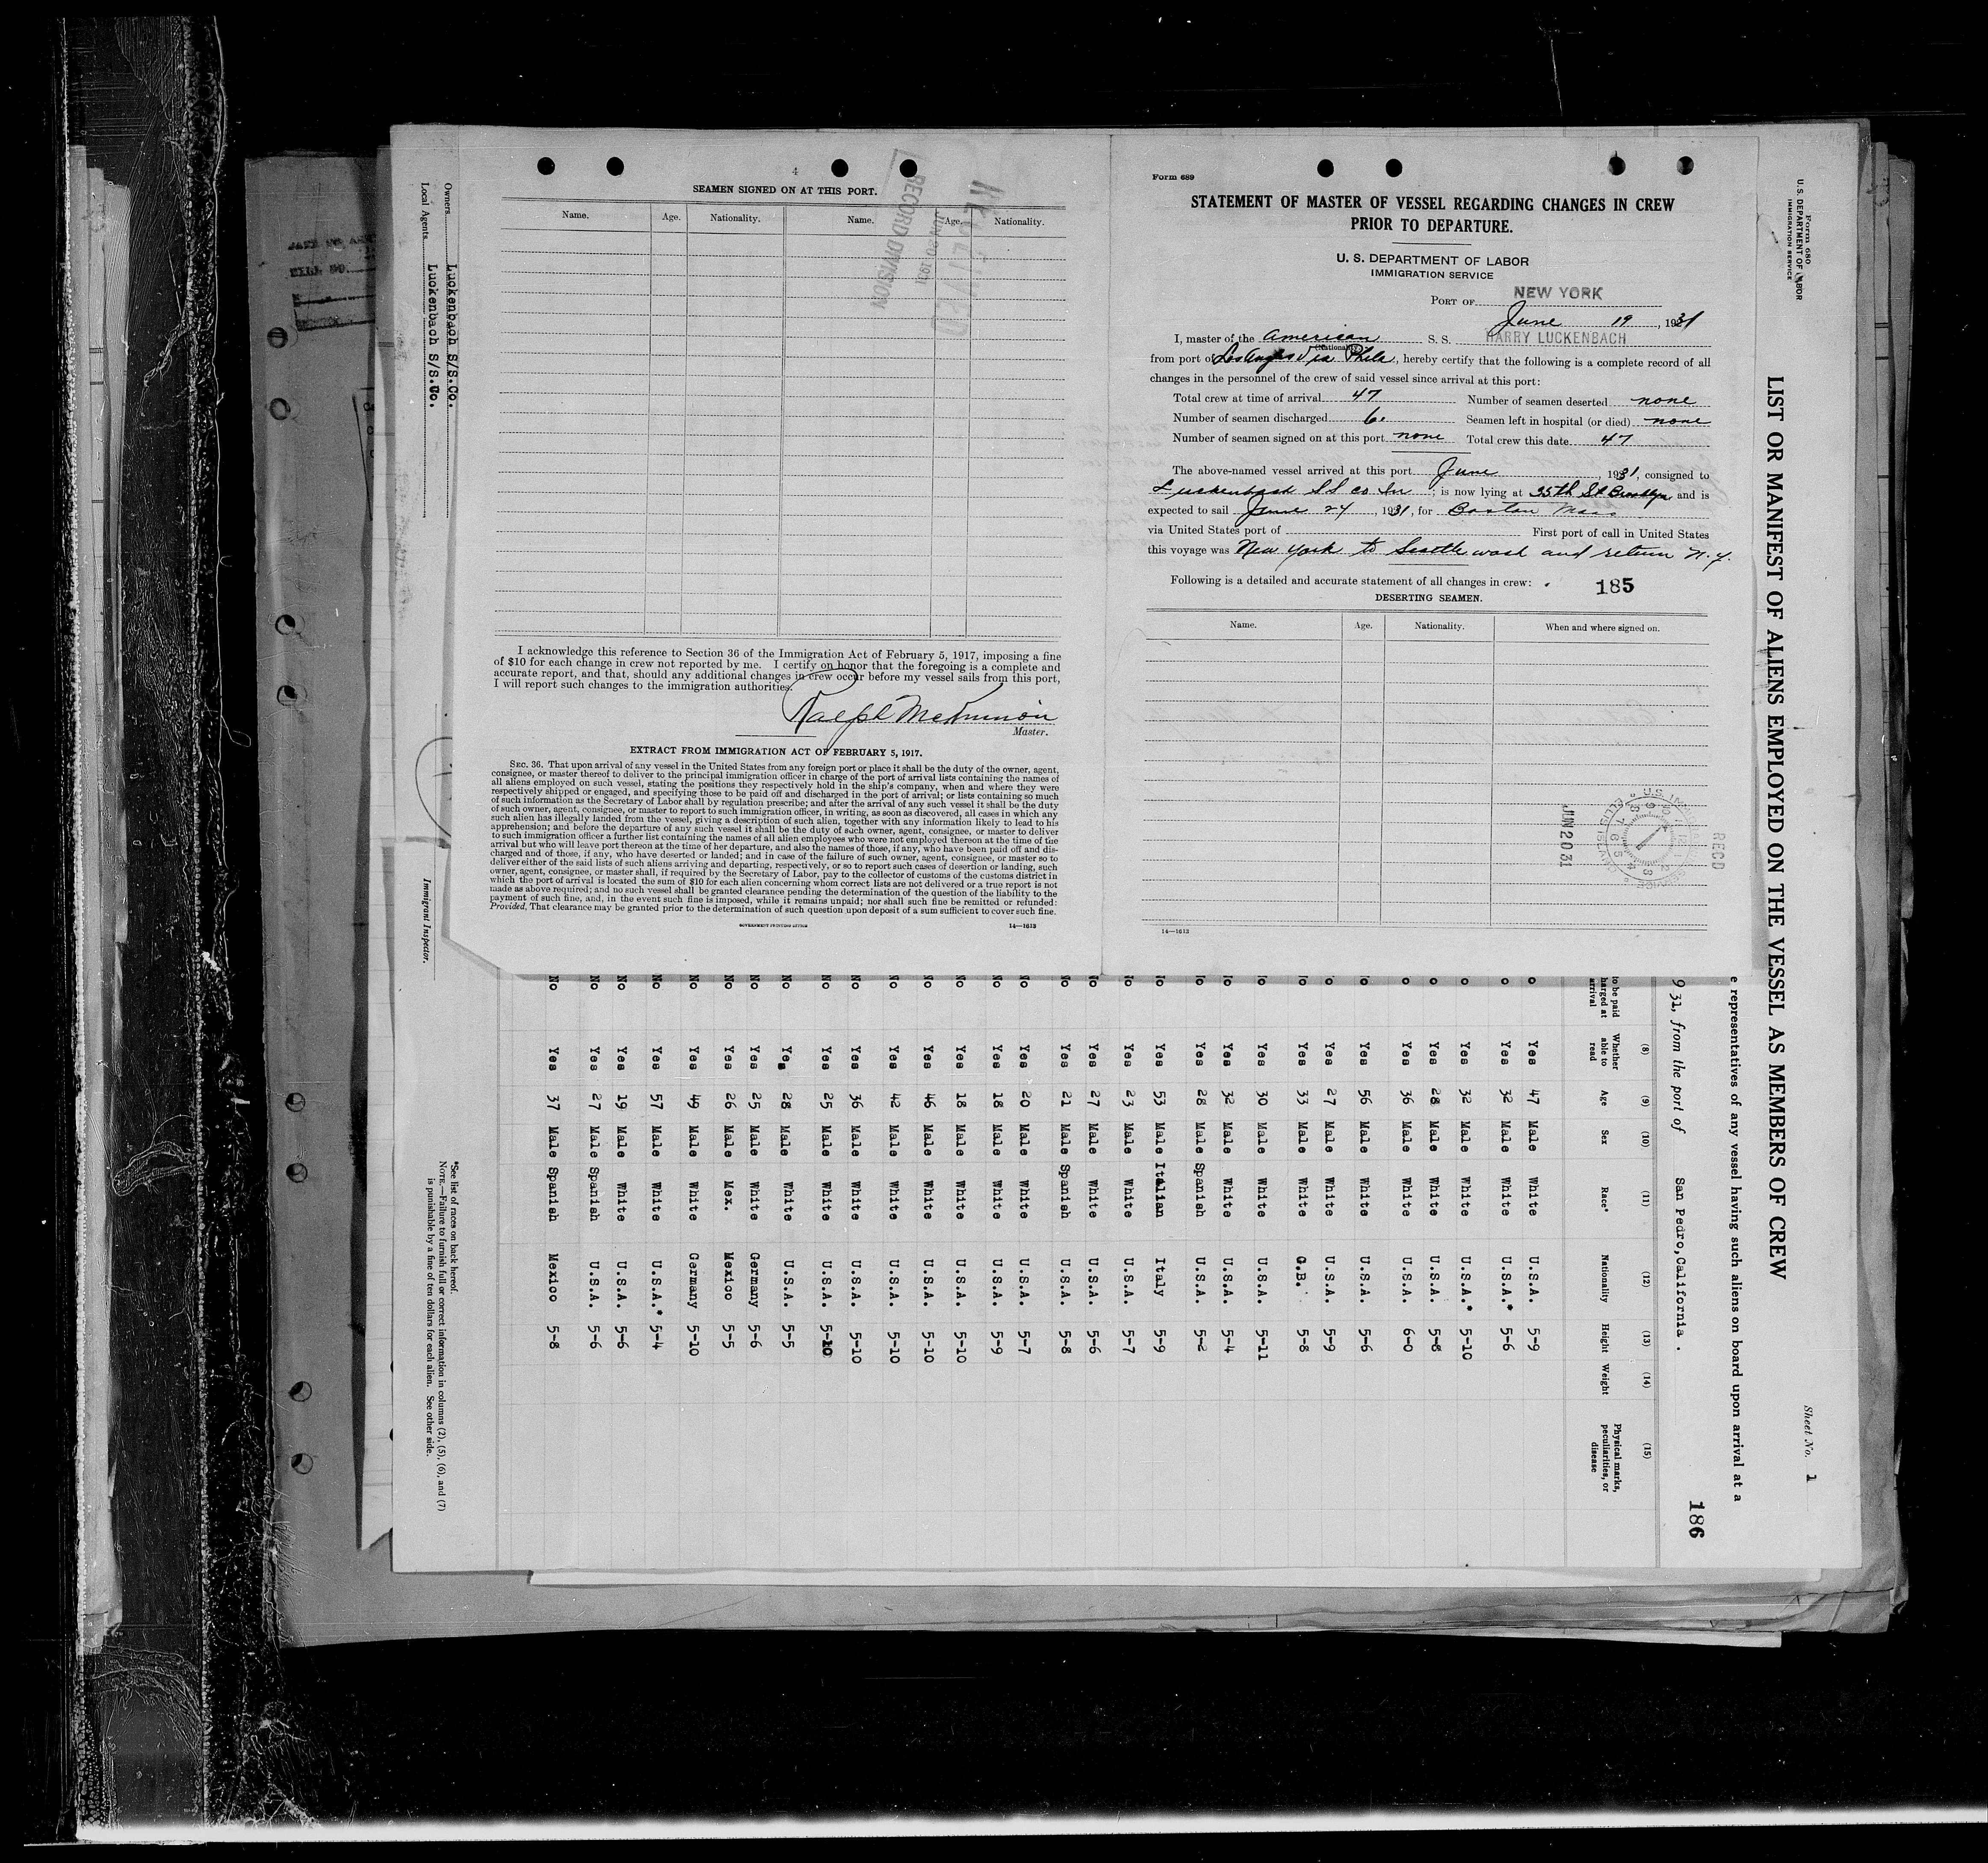 4
SEAMEN SIGNED ON AT THIS PORT.
Name. Age. Nationality. Name. Age. Nationality.
RECEIVED
JUN 20 1931
RECORD DIVISION
I acknowledge this reference to Section 36 of the Immigration Act of February 5, 1917, imposing a fine
of $10 for each change in crew not reported by me. I certify on honor that the foregoing is a complete and
accurate report, and that, should any additional changes in crew occur before my vessel sails from this port,
I will report such changes to the immigration authorities.
Ralph McKinnon
Master.
EXTRACT FROM IMMIGRATION ACT OF FEBRUARY 5, 1917.
SEC. 36. That upon arrival of any vessel in the United States from any foreign port or place it shall be the duty of the owner, agent,
consignee, or master thereof to deliver to the principal immigration officer in charge of the port of arrival lists containing the names of
all aliens employed on such vessel, stating the positions they respectively hold in the ship's company, when and where they were
respectively shipped or engaged, and specifying those to be paid off and discharged in the port of arrival; or lists containing so much
of such information as the Secretary of Labor shall by regulation prescribe; and after the arrival of any such vessel it shall be the duty
of such owner, agent, consignee, or master to report to such immigration officer, in writing, as soon as discovered, all cases in which any
such alien has illegally landed from the vessel, giving a description of such alien, together with any information likely to lead to his
apprehension; and before the departure of any such vessel it shall be the duty of such owner, agent, consignee, or master to deliver
to such immigration officer a further list containing the names of all alien employees who were not employed thereon at the time of the
arrival but who will leave port thereon at the time of her departure, and also the names of those, if any, who have been paid off and dis-
charged and of those, if any, who have deserted or landed; and in case of the failure of such owner, agent, consignee, or master so to
deliver either of the said lists of such aliens arriving and departing, respectively, or so to report such cases of desertion or landing, such
owner, agent, consignee, or master shall, if required by the Secretary of Labor, pay to the collector of customs of the customs district in
which the port of arrival is located the sum of $10 for each alien concerning whom correct lists are not delivered or a true report is not
made as above required; and no such vessel shall be granted clearance pending the determination of the question of the liability to the
payment of such fine, and, in the event such fine is imposed, while it remains unpaid; nor shall such fine be remitted or refunded:
Provided, That clearance may be granted prior to the determination of such question upon deposit of a sum sufficient to cover such fine.
GOVERNMENT PRINTING OFFICE 14—1613
Form 689
STATEMENT OF MASTER OF VESSEL REGARDING CHANGES IN CREW
PRIOR TO DEPARTURE.
U. S. DEPARTMENT OF LABOR
IMMIGRATION SERVICE
PORT OF NEW YORK
June 19, 1931
I, master of the American S. S. HARRY LUCKENBACH
(Nationality)
from port of Los Angeles Via Phila, hereby certify that the following is a complete record of all
changes in the personnel of the crew of said vessel since arrival at this port:
Total crew at time of arrival 47 Number of seamen deserted none
Number of seamen discharged 6. Seamen left in hospital (or died) none
Number of seamen signed on at this port none Total crew this date 47
The above-named vessel arrived at this port June, 1931, consigned to
Luckenbach SS Co In; is now lying at 35th St Brooklyn and is
expected to sail June 24, 1931, for Boston Mass
via United States port of First port of call in United States
this voyage was New York to Seattle wash and return N.Y.
Following is a detailed and accurate statement of all changes in crew:
185
DESERTING SEAMEN.
Name. Age. Nationality. When and where signed on.
JUN 20 31
RECD
14—1613
Form 680
U. S. DEPARTMENT OF LABOR
IMMIGRATION SERVICE
Sheet No. 1
LIST OR MANIFEST OF ALIENS EMPLOYED ON THE VESSEL AS MEMBERS OF CREW
e representatives of any vessel having such aliens on board upon arrival at a
186
9 31, from the port of San Pedro, California.
to be paid harged at arrival (8) Whether able to read (9) Age (10) Sex (11) Race* (12) Nationality (13) Height (14) Weight (15) Physical marks, peculiarities, or disease
o Yes 47 Male White U.S.A. 5-9
o Yes 32 Male White U.S.A.* 5-6
o Yes 32 Male White U.S.A.* 5-10
o Yes 28 Male White U.S.A. 5-8
o Yes 36 Male White U.S.A. 6-0
o Yes 56 Male White U.S.A. 5-6
o Yes 27 Male White U.S.A. 5-9
lo Yes 33 Male White G.B. 5-8
lo Yes 30 Male White U.S.A. 5-11
lo Yes 32 Male White U.S.A. 5-4
lo Yes 28 Male Spanish U.S.A. 5-2
lo Yes 53 Male Italian Italy 5-9
lo Yes 23 Male White U.S.A. 5-7
No Yes 27 Male White U.S.A. 5-6
No Yes 21 Male Spanish U.S.A. 5-8
No Yes 20 Male White U.S.A. 5-7
No Yes 18 Male White U.S.A. 5-9
No Yes 18 Male White U.S.A. 5-10
No Yes 46 Male White U.S.A. 5-10
No Yes 42 Male White U.S.A. 5-10
No Yes 36 Male White U.S.A. 5-10
No Yes 25 Male White U.S.A. 5-10
No Yes 28 Male White U.S.A. 5-5
No Yes 25 Male White Germany 5-6
No Yes 26 Male Mex. Mexico 5-5
No Yes 49 Male White Germany 5-10
No Yes 57 Male White U.S.A.* 5-4
No Yes 19 Male White U.S.A. 5-6
No Yes 27 Male Spanish U.S.A. 5-6
No Yes 37 Male Spanish Mexico 5-8
Owners Luckenbach S/S.Co.
Local Agents Luckenbach S/S.Co.
Immigrant Inspector.
*See list of races on back hereof.
NOTE.—Failure to furnish full or correct information in columns (2), (5), (6), and (7)
is punishable by a fine of ten dollars for each alien. See other side.